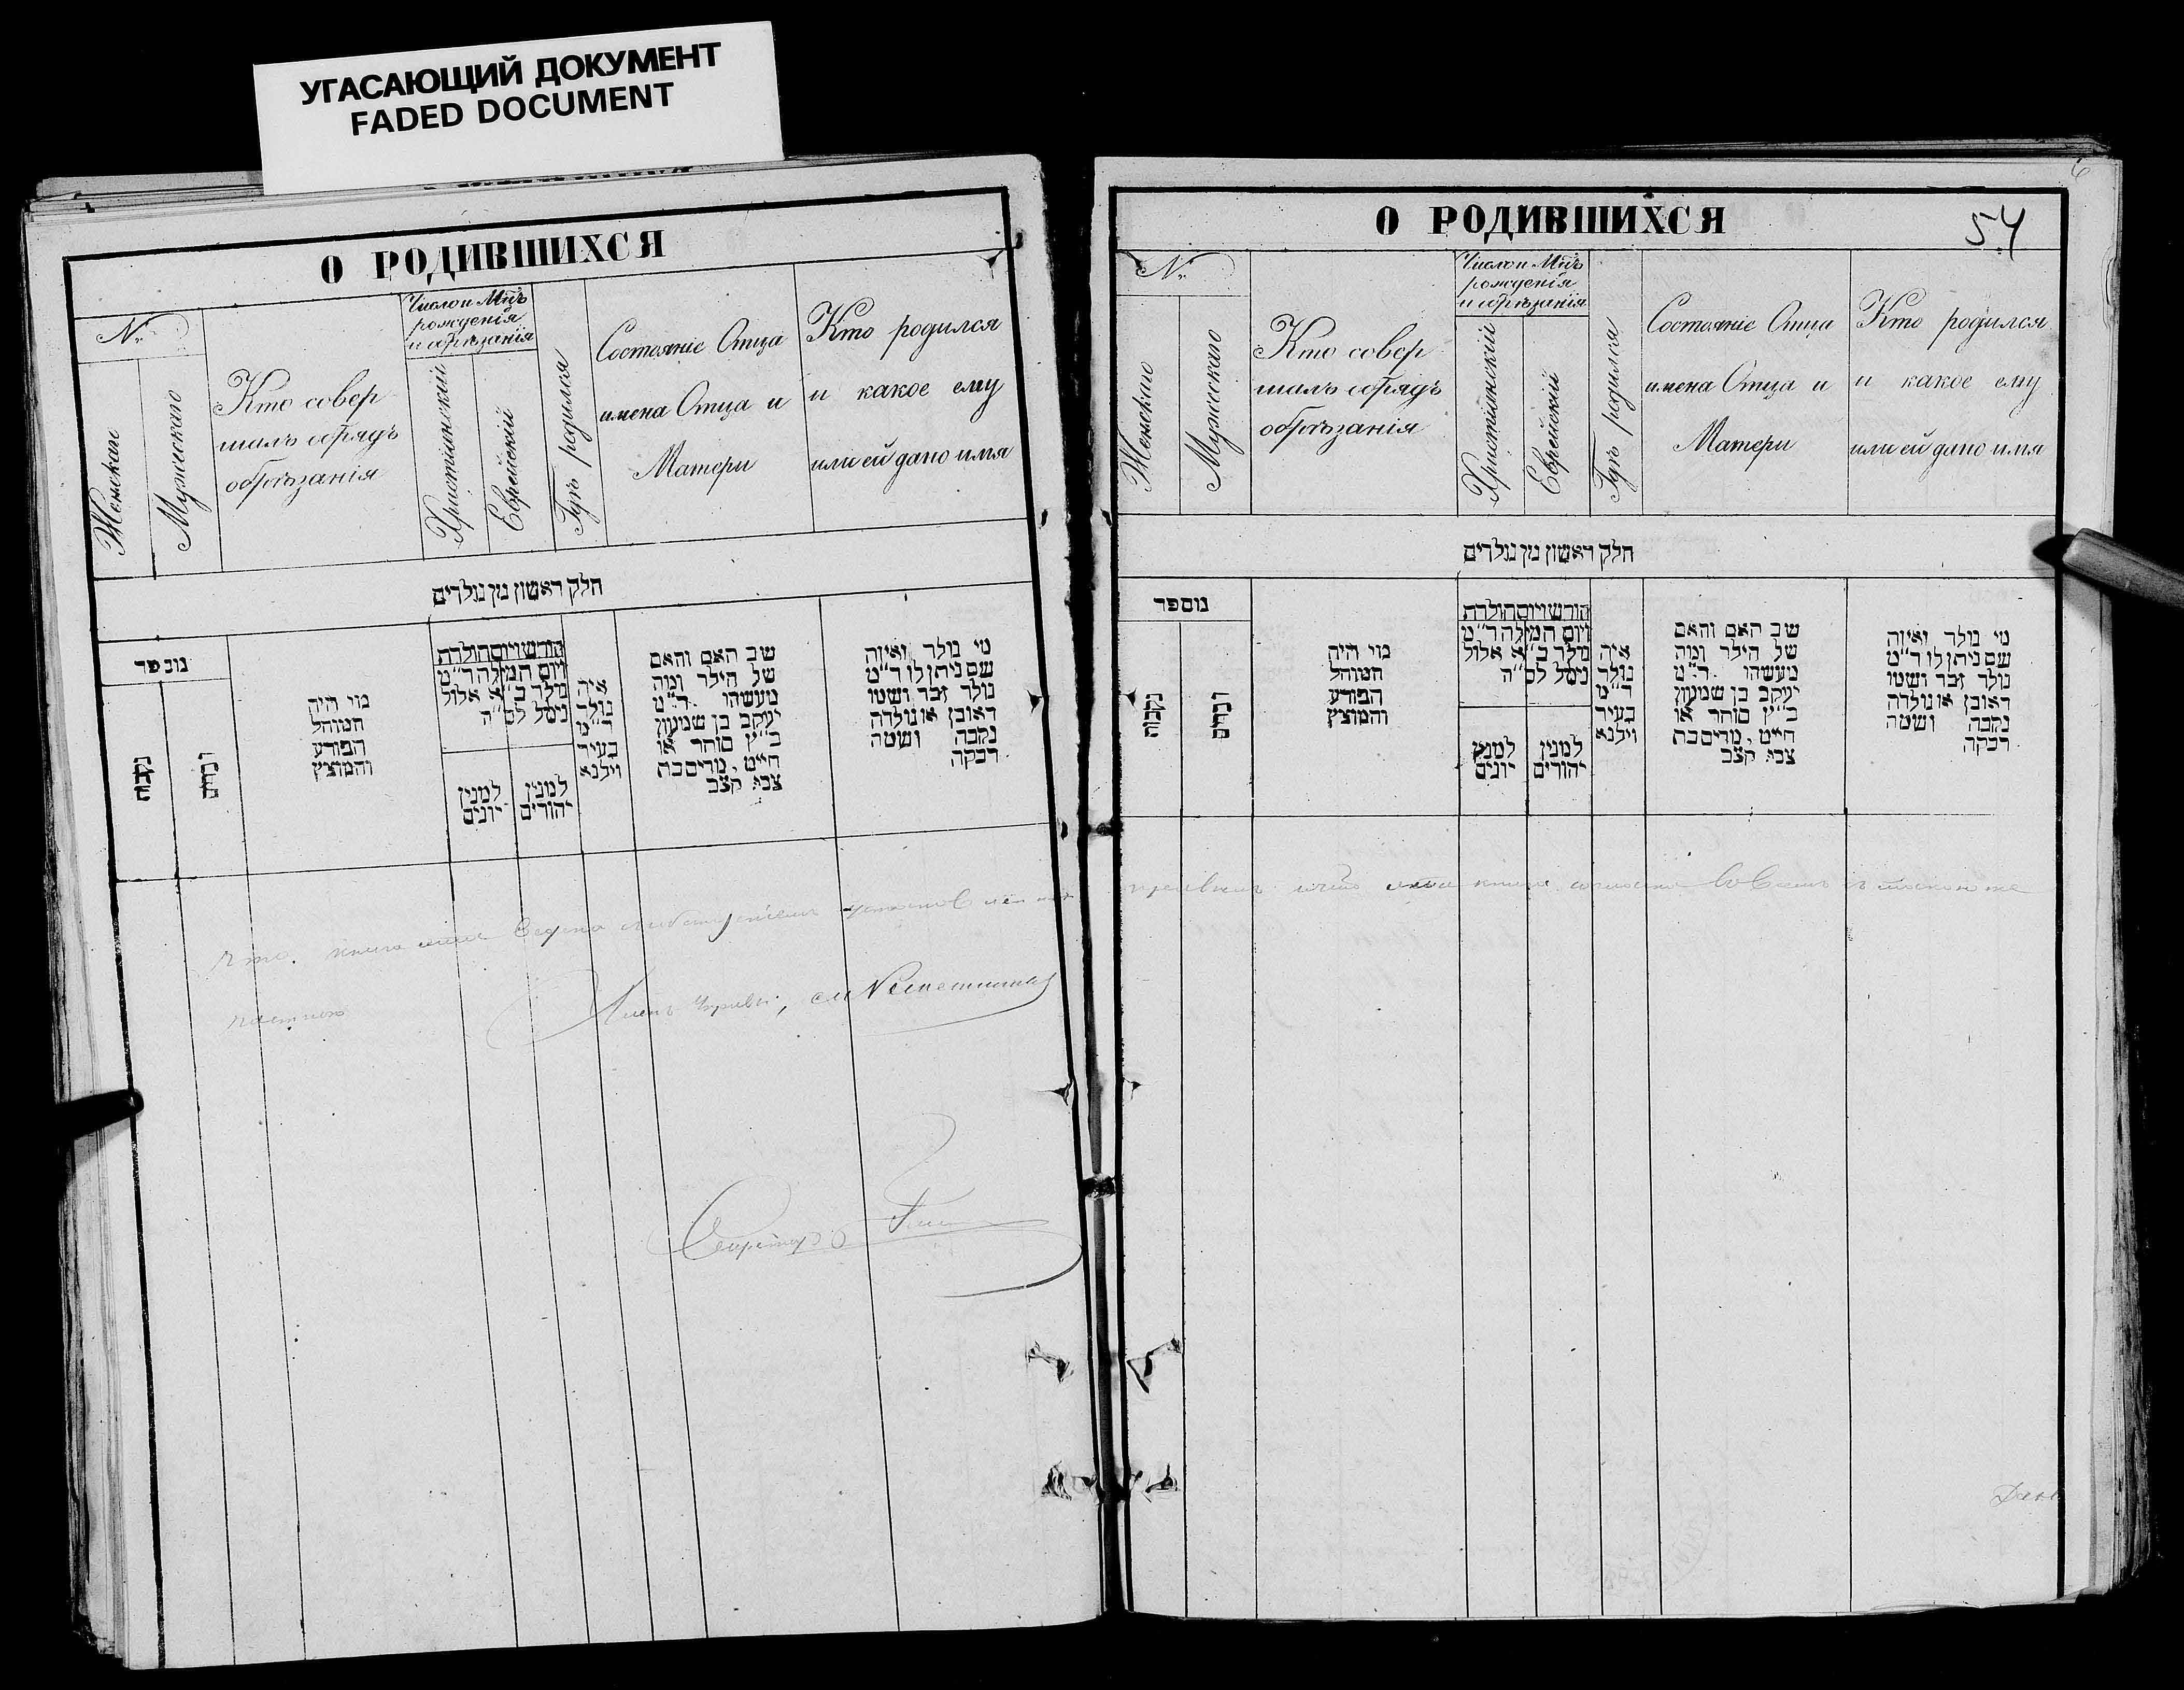 УГАСАЮЩИЙ ДОКУМЕНТ
FADED DOCUMENT
О РОДИВШИХСЯ
№
Женскаго
Мужескаго
Кто совер
шалъ обрядъ
обрѣзанія
Число и Мцъ
рожденія
и обрѣзанія
Христіянскій
Еврейскій
Гдѣ родился
Состояніе Отца
имена Отца и
Матери
Кто родился
и какое ему
или ей дано имя
חלק ראשון מן נולדים
נומפר
נקבות
זכרים
מוי היה
המוהל
הפורע
והמוצץ
חודש ויום הולדת
ויום המילה ד״מ
נולד כ״א אלול
ניסל לס״ה
למנין
יונים
למנין
יהודים
איה
נולד
ד״מ
בעיר
וילנא
שב האם והאם
של הילד ומה
מעשהו ד״מ
יעקב בן שמעון
כ״ץ סוחר או
חייט, מרים בת
צבי קצב
מי נולד ואיזה
שם ניתן לו ד״מ
נולד זכר ושמו
ראובן או נולדה
נקבה ושמה
רבקה
что. книга
Секретарь
О РОДИВШИХСЯ
54
6
№
Женскаго
Мужескаго
Кто совер
шалъ обрядъ
обрѣзанія
Число и Мцъ
рожденія
и обрѣзанія
Христіянскій
Еврейскій
Гдѣ родился
Состояніе Отца
имена Отца и
Матери
Кто родился
и какое ему
или ей дано имя
חלק ראשון מן נולדים
נומפר
נקבות
זכרים
מוי היה
המוהל
הפורע
והמוצץ
חודש ויום הולדת
ויום המילה ד״מ
נולד כ״א אלול
ניסל לס״ה
למנין
יונים
למנין
יהודים
איה
נולד
ד״מ
בעיר
וילנא
שב האם והאם
של הילד ומה
מעשהו ד״מ
יעקב בן שמעון
כ״ץ סוחר או
חייט, מרים בת
צבי קצב
מי נולד ואיזה
שם ניתן לו ד״מ
נולד זכר ושמו
ראובן או נולדה
נקבה ושמה
רבקה
книга